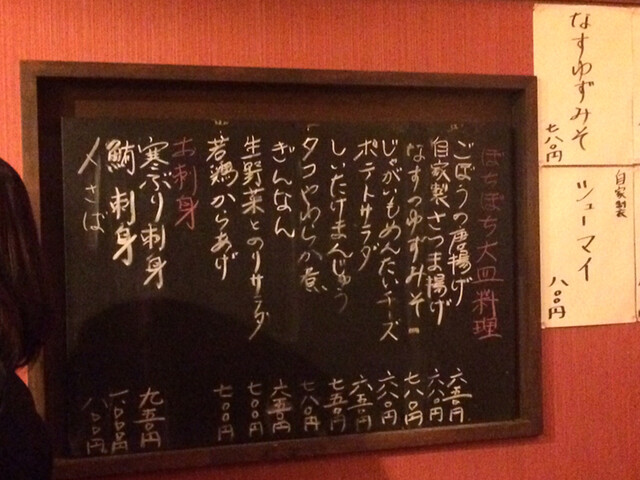 なすゆずみそ 七八〇円
自家製 シューマイ 八〇〇円
ぽちぽち大皿料理
ごぼうの唐揚げ 六五〇円
自家製さつま揚げ 六八〇円
なすのゆずみそ 七八〇円
じゃがいもめんたいチーズ 六八〇円
ポテトサラダ 六五〇円
しいたけまんじゅう 七五〇円
タコやわらか煮 七八〇円
ぎんなん 六五〇円
生野菜とのりサラダ 七〇〇円
若鶏からあげ 七〇〇円
お刺身
寒ぶり刺身 九五〇円
鮪刺身 一〇〇〇円
〆さば 八〇〇円